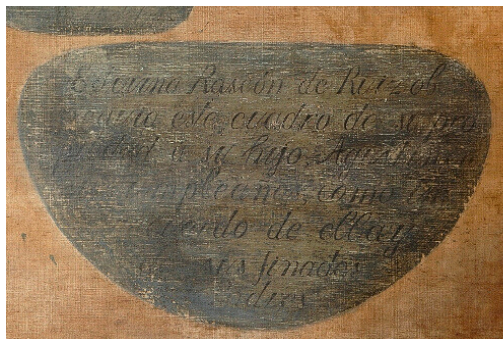 Rascón de Ruiz ob
sequio este cuadro de su pro
piedad a su hijo, Agustin en
pleaños, como un
cuerdo de ella y
sus finados
Padres